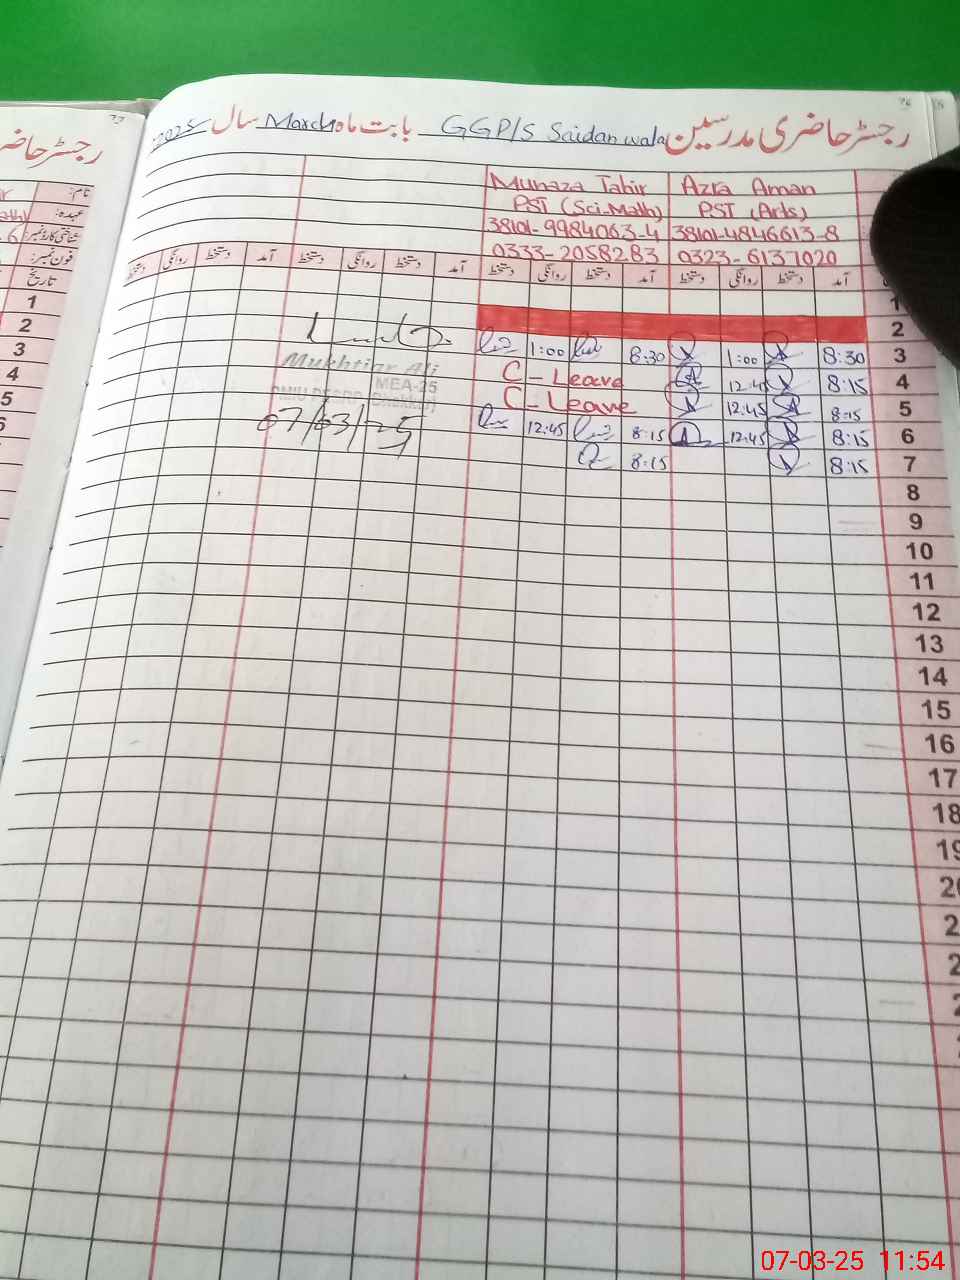 رجسٹر حاضری مدرسین GGP/S Saidan wala بابت ماہ March سال 2025
Munaza Tahir Azra Aman
PST (Sci.Math) PST (Arts)
38101-9984063-4 38101-4846613-8
0333-2058283 0323-6137020
آمد دستخط روانگی دستخط آمد دستخط روانگی دستخط آمد دستخط روانگی دستخط آمد دستخط روانگی دستخط
1
2
3 8:30 1:00 8:30 1:00
4 8:15 12:45 C-Leave
5 8:15 12:45 C-Leave
6 8:15 12:45 8:15 12:45
7 8:15 8:15
8
9
10
11
12
13
14
15
16
17
18
Mukhtiar Ali
MEA-25
07/03/25
رجسٹر حاضر
نام:
عہدہ:
شناختی کارڈ نمبر:
فون نمبر:
تاریخ
1
2
3
4
5
6
07-03-25 11:54